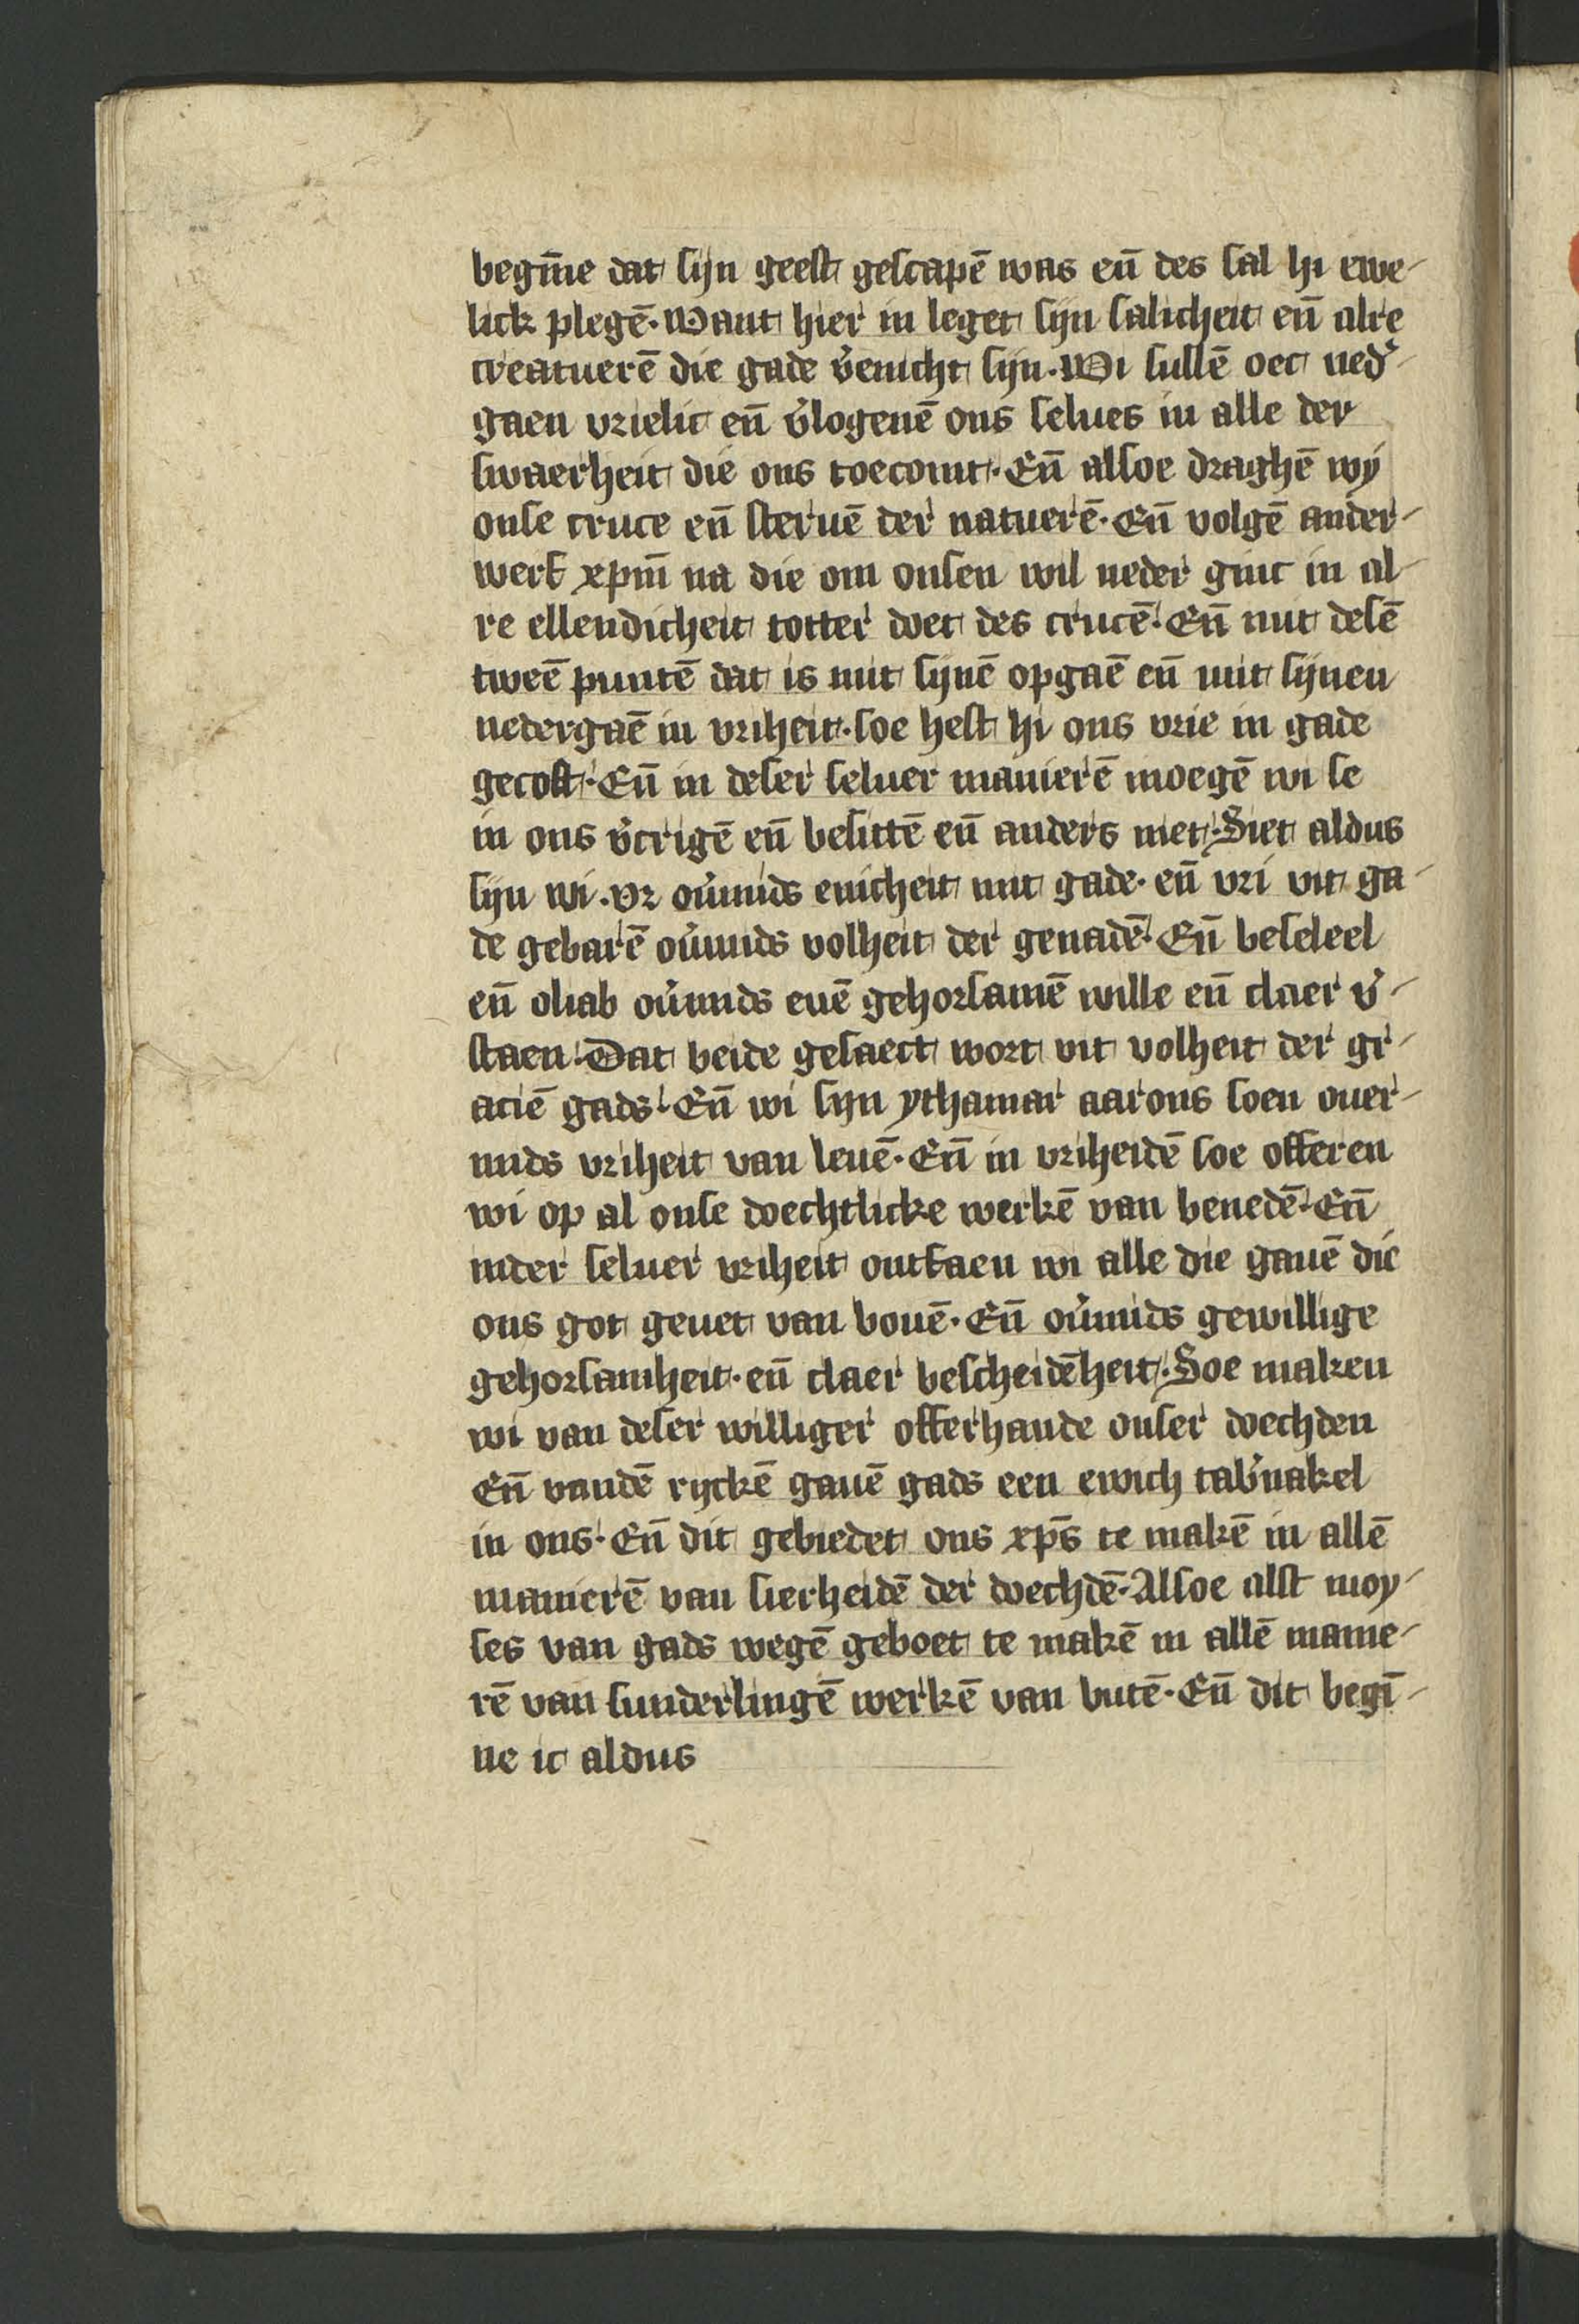 begin̄e dat sijn geest gescapē was en̄ des sal hi ewe-
lick plegē. Want hier in leget sijn salicheit en̄ alre
creatuerē die gade v̉enicht sijn. Wi sullē oec ned̉-
gaen vrielic en̄ v̉logenē ons selues in alle der
swaerheit die ons toecomt. En̄ alsoe draghē wy
onse cruce en̄ steruē der natuerē. En̄ volgē ander-
werf xpm̄ na die om onsen wil neder ginc in al-
re ellendicheit totter doet des crucē. En̄ mit desē
tweē puntē dat is mit sijnē opgaē en̄ mit sijnen
nedergaē in vriheit. soe heft hi ons vrie in gade
gecoft. En̄ in deser seluer manierē moegē wi se
in ons v̉crigē en̄ besittē en̄ anders niet. Siet aldus
sijn wi. vr ov̉mids enicheit mit gade. en̄ vri vit ga-
de gebarē ov̉mids volheit der genadē. En̄ beseleel
en̄ oliab ov̉mids euē gehorsamē wille en̄ claer v̉-
staen. Dat beide gesaect wort vit volheit der gr-
aciē gads. En̄ wi sijn ythamar aarons soen ouer-
mids vriheit van leuē. En̄ in vriheidē soe offeren
wi op al onse doechtlicke werkē van benedē. En̄
inder seluer vriheit ontfaen wi alle die gauē die
ons got geuet van bouē. En̄ ov̉mids gewillige
gehorsamheit. en̄ claer bescheidēheit. Soe maken
wi van deser williger offerhande onser doechden
En̄ vandē ryckē gauē gads een ewich tab̉nakel
in ons. En̄ dit gebiedet ons xp̄s te makē in allē
manierē van sierheidē der doechdē. Alsoe alst moy-
ses van gads wegē geboet te makē in allē manie-
rē van sunderlingē werkē van butē. En̄ dit begī-
ne ic aldus